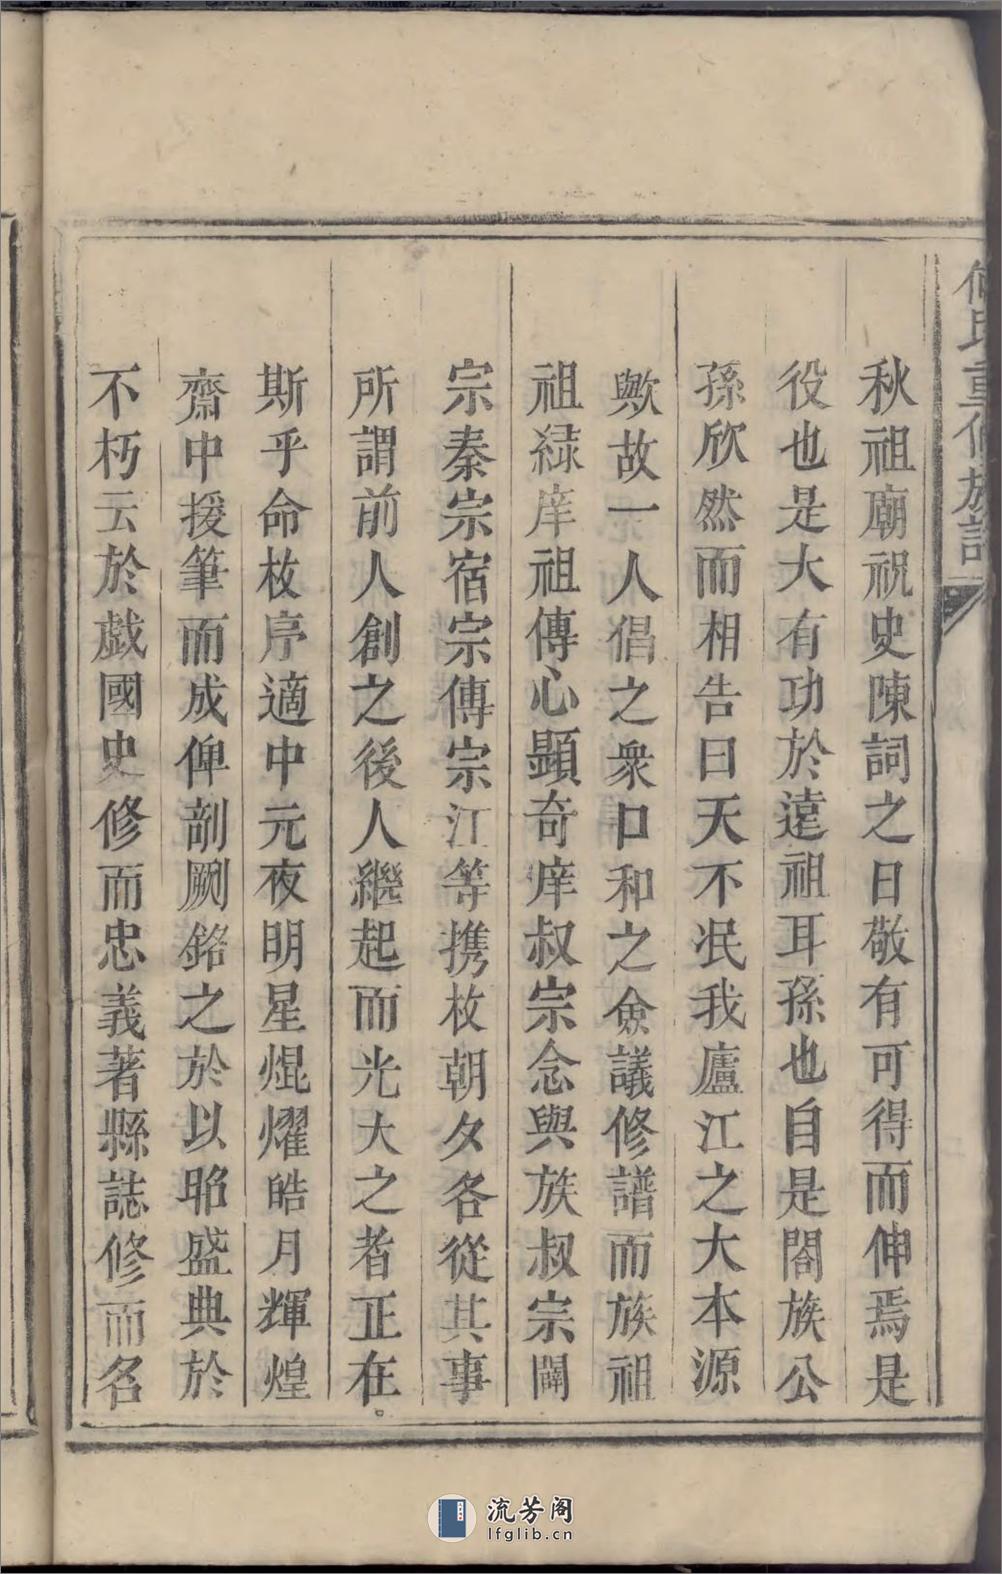 何氏重修族譜
秋祖廟祝史陳詞之日敬有可得而伸焉是
役也是大有功於遠祖耳孫也自是閤族公
孫欣然而相告曰天不泯我廬江之大本源
歟故一人倡之衆口和之僉議修譜而族祖
祖綠庠祖傳心顯奇庠叔宗念與族叔宗闢
宗秦宗宿宗傳宗江等携枚朝夕各從其事
所謂前人創之後人繼起而光大之者正在
斯乎命枚序適中元夜明星焜耀皓月輝煌
齋中援筆而成俾剞劂銘之於以昭盛典於
不朽云於戲國史修而忠義著縣誌修而名
流芳阁
lfglib.cn